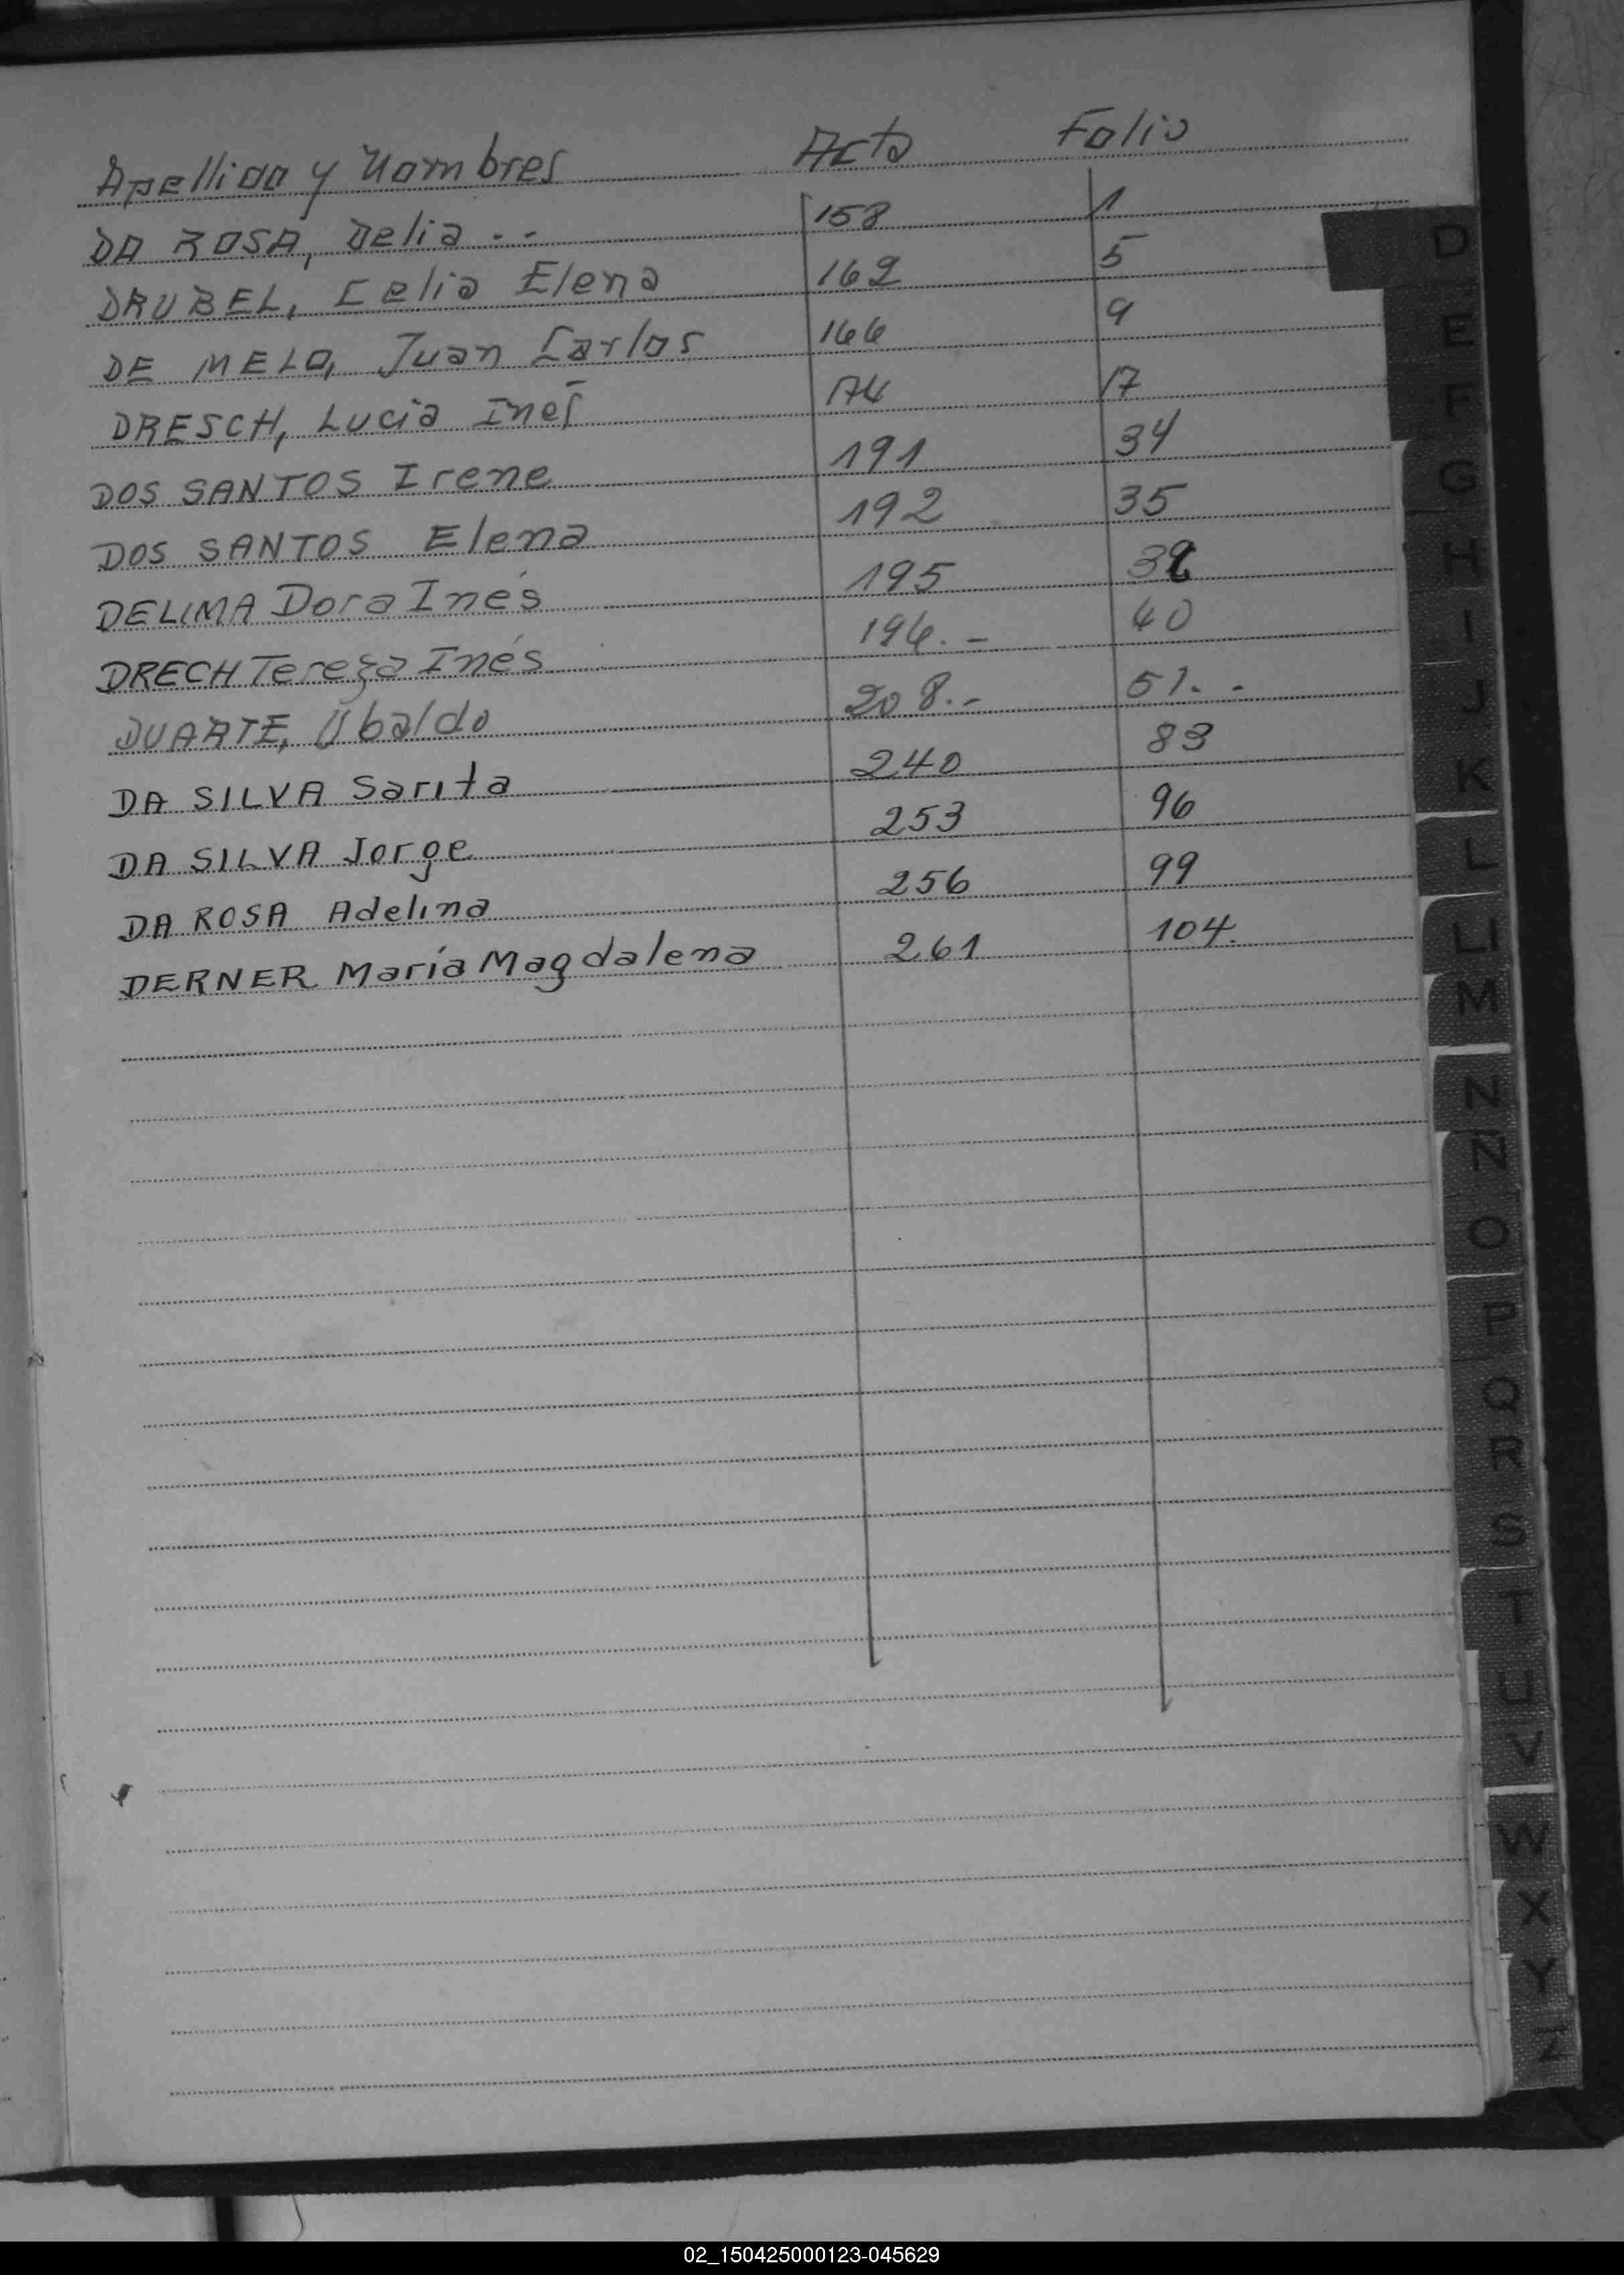 Apellido y Nombres Acta Folio
DA ROSA, Delia - - 158 1
DRUBEL, Celia Elena 162 5
DE MELO, Juan Carlos 166 9
DRESCH, Lucia Inés 174 17
DOS SANTOS Irene 191 34
DOS SANTOS Elena 192 35
DELIMA Dora Inés 195
DRECH Tereza Inés 196.- 40
DUARTE, Ubaldo 208.- 51.-
DA SILVA Sarita 240 83
DA SILVA Jorge 253 96
DA ROSA Adelina 256 99
DERNER María Magdalena 261 104.
D
E
F
G
H
I
J
K
L
Ll
M
N
Ñ
O
P
Q
R
S
T
U
V
W
X
Y
Z
02_150425000123-045629